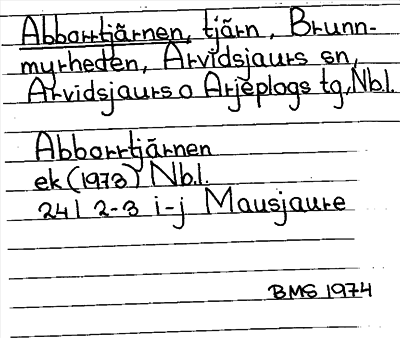 Abborrtjärnen, tjärn, Brunn-
myrheden, Arvidsjaurs sn,
Arvidsjaurs o Arjeplogs tg, Nb.l.
Abborrtjärnen
ek (1973) Nb.l.
24I 2-3 i-j Mausjaure
BMS 1974